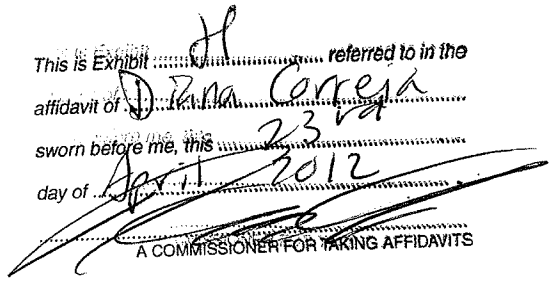 This is Exhibit H referred to in the
affidavit of Diana Correia
sworn before me, this 23rd
day of April 2012
A COMMISSIONER FOR TAKING AFFIDAVITS